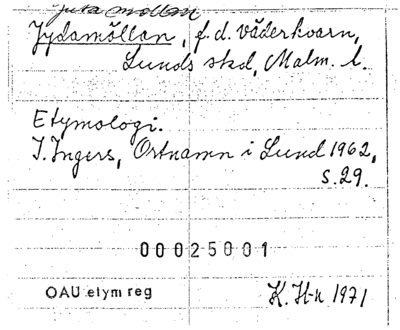 Jydamöllan, f.d. väderkvarn,
Lunds stad, Malm. l.
Etymologi.
I. Ingers, Ortnamn i Lund 1962,
s. 29.
00025001
OAU etym reg
K. H-n 1971